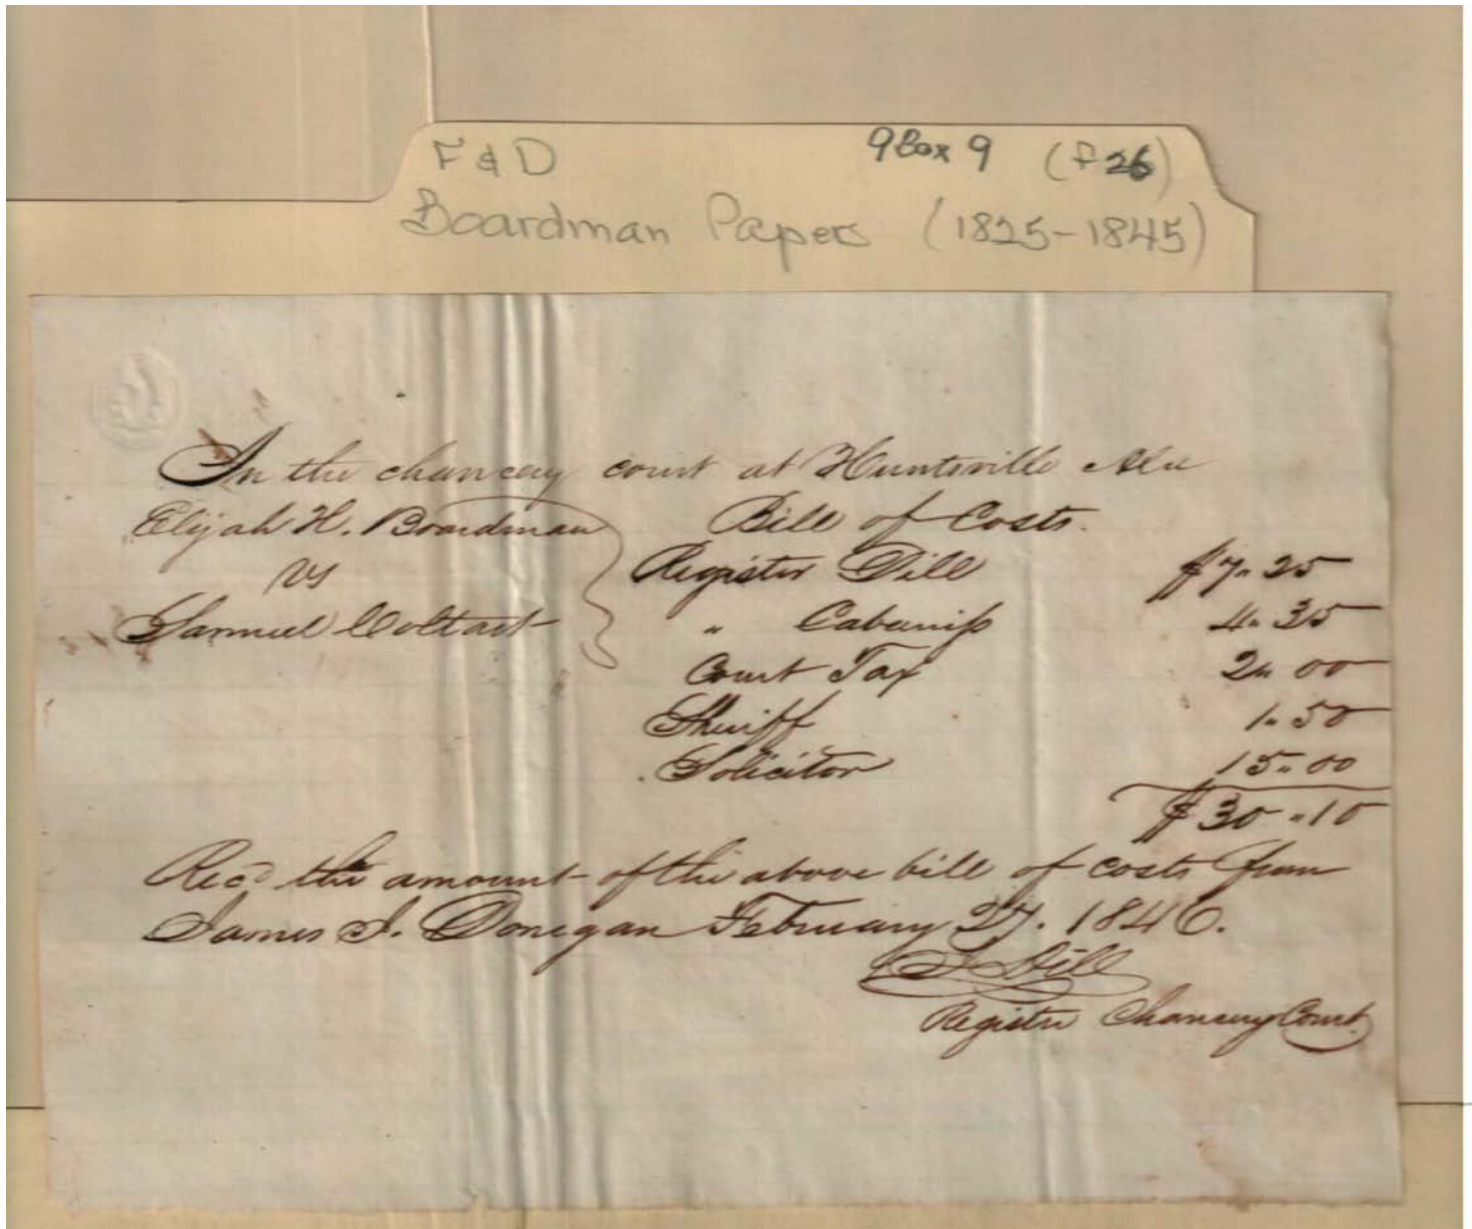 F & D 9 Box 9 (f 26)
Boardman Papers (1825-1845)
In the chancery court at Huntsville Ala
Elijah H. Boardman Bill of Costs.
vs Register Dill $7.25
Samuel Coltart " Cabaniss 4.35
Court Tax 2.00
Sheriff 1.50
Solicitor 15.00
$30.10
Recd the amount of the above bill of costs from
James J. Donegan February 27. 1846.
Dill
Register Chancery Court